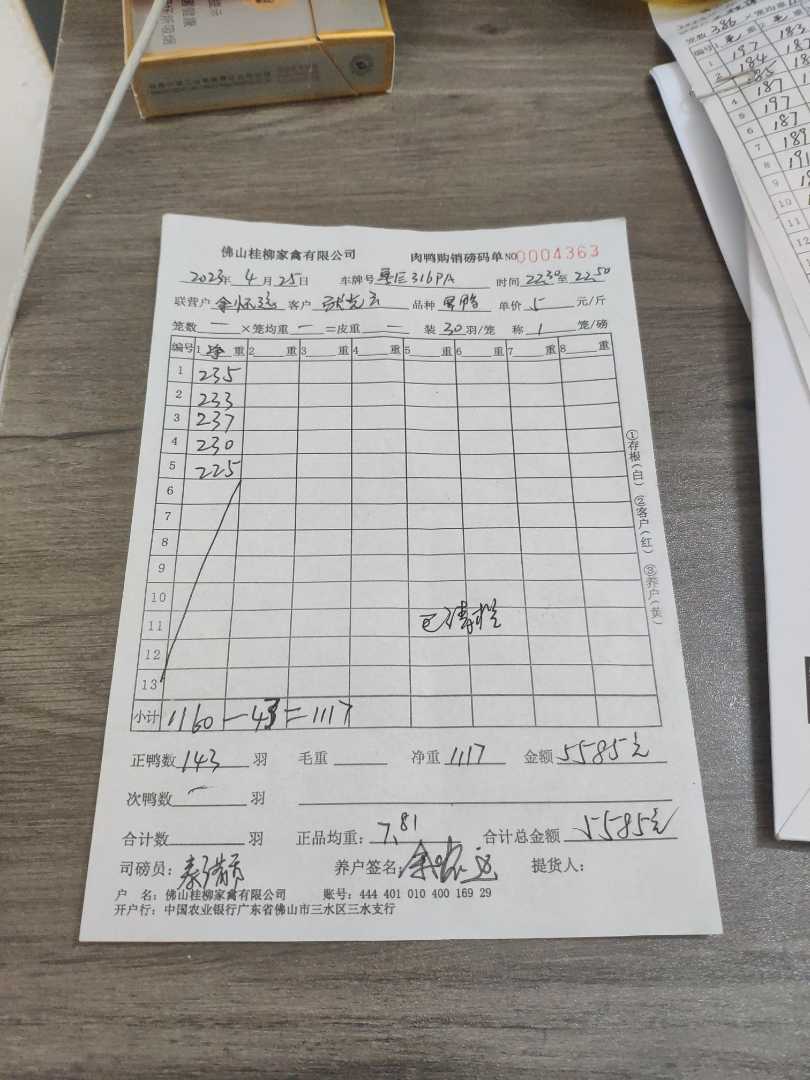 佛山桂柳家禽有限公司 肉鸭购销磅码单 NO 0004363
2023年 4月 25日 车牌号 粤E 316PA 时间 22.30 至 22.50
联营户 余怀远 客户 品种 黑鸭 单价 5 元/斤
笼数 一 ×笼均重 一 =皮重 一 装 30 羽/笼 称 1 笼/磅
编号 1 净 重 2 重 3 重 4 重 5 重 6 重 7 重 8 重
1 235
2 233
3 237
4 230
5 225
6
7
8
9
10
11 已清栏
12
13
小计 1160-43=1117
①存根(白) ②客户(红) ③养户(黄)
正鸭数 143 羽 毛重 净重 1117 金额 5585元
次鸭数 一 羽
合计数 羽 正品均重: 7.81 合计总金额 5585元
司磅员: 养户签名: 余怀远 提货人:
户 名: 佛山桂柳家禽有限公司 账号: 444 401 010 400 169 29
开户行: 中国农业银行广东省佛山市三水区三水支行
笼数 386 ×笼均重
编号 1 毛 重 2 毛 重
1 197 183
2 184
185
4 187
5 197
6 187
7 189
8 191
9
10
11
12